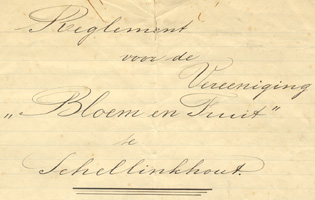 Reglement
voor de
Vereeniging
„Bloem en Fruit"
te
Schellinkhout.